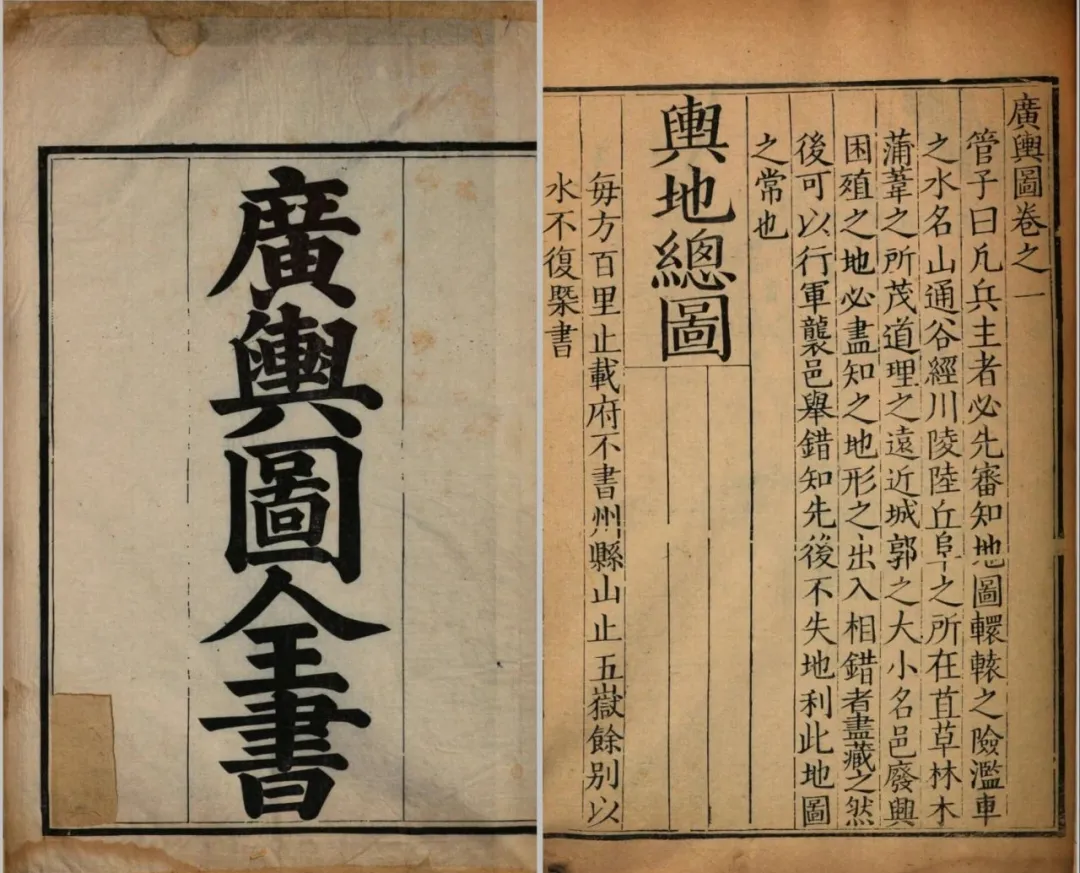 廣輿圖全書
廣輿圖卷之一
管子曰凡兵主者必先審知地圖轘轅之險濫車
之水名山通谷經川陵陸丘阜之所在苴草林木
蒲葦之所茂道理之遠近城郭之大小名邑廢興
困殖之地必盡知之地形之出入相錯者盡藏之然
後可以行軍襲邑舉錯知先後不失地利此地圖
之常也
輿地總圖
每方百里止載府不書州縣山止五嶽餘別以
水不復槩書